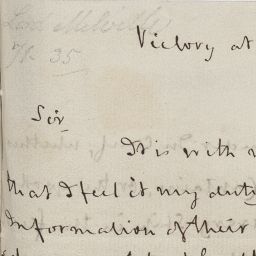 Lord Melville
35
Victory at
Sir
It is with
that I feel it my duty
Information of their